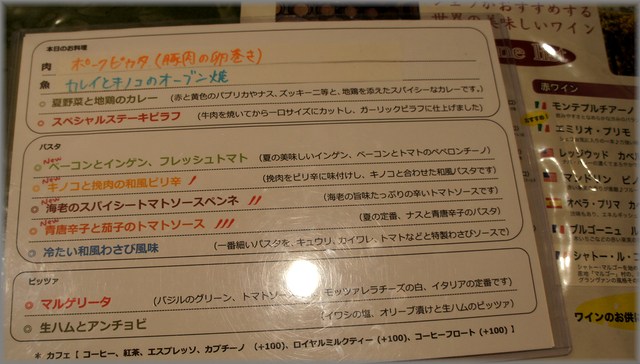 本日のお料理
肉 ポークピカタ(豚肉の卵巻き)
魚 カレイとキノコのオーブン焼
夏野菜と地鶏のカレー (赤と黄色のパプリカやナス、ズッキーニ等と、地鶏を添えたスパイシーなカレーです。)
スペシャルステーキピラフ (牛肉を焼いてから一口サイズにカットし、ガーリックピラフに仕上げました)
パスタ
New ベーコンとインゲン、フレッシュトマト (夏の美味しいインゲン、ベーコンとトマトのペペロンチーノ)
New キノコと挽肉の和風ピリ辛 (挽肉をピリ辛に味付けし、キノコと合わせた和風パスタです)
New 海老のスパイシートマトソースペンネ (海老の旨味たっぷりの辛いトマトソースです)
New 青唐辛子と茄子のトマトソース (夏の定番、ナスと青唐辛子のパスタ)
冷たい和風わさび風味 (一番細いパスタを、キュウリ、カイワレ、トマトなどと特製わさびソースで)
ピッツァ
マルゲリータ (バジルのグリーン、トマトソース モッツァレラチーズの白、イタリアの定番です)
生ハムとアンチョビ (イワシの塩、オリーブ漬けと生ハムのピッツァ)
* カフェ【 コーヒー、紅茶、エスプレッソ、カプチーノ (+100)、ロイヤルミルクティー (+100)、コーヒーフロート (+100) 】
がおすすめする
世界の美味しいワイン
赤ワイン
モンテプルチアーノ
おすすめ!
エミリオ・プリモ
レッドウッド
オペラ・プリマ
ブルゴーニュ
シャトー・ル・
ワインのお供